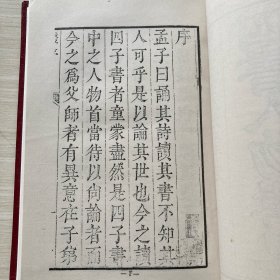 序
孟子曰誦其詩讀其書不知其
人可乎是以論其世也今之讀
四子書者童蒙盡然是四子書
中之人物首當待以尙論者而
今之爲父師者有異意在子弟